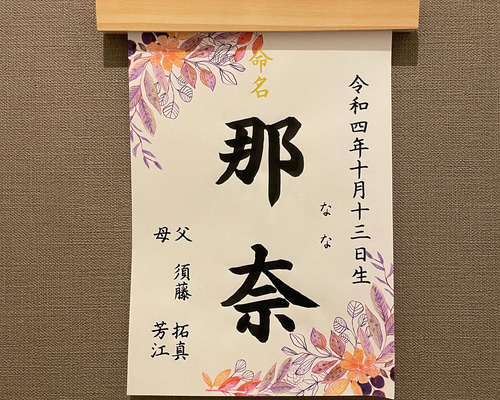 令和四年十月十三日生
命名
那奈
なな
父 須藤 拓真
母 芳江